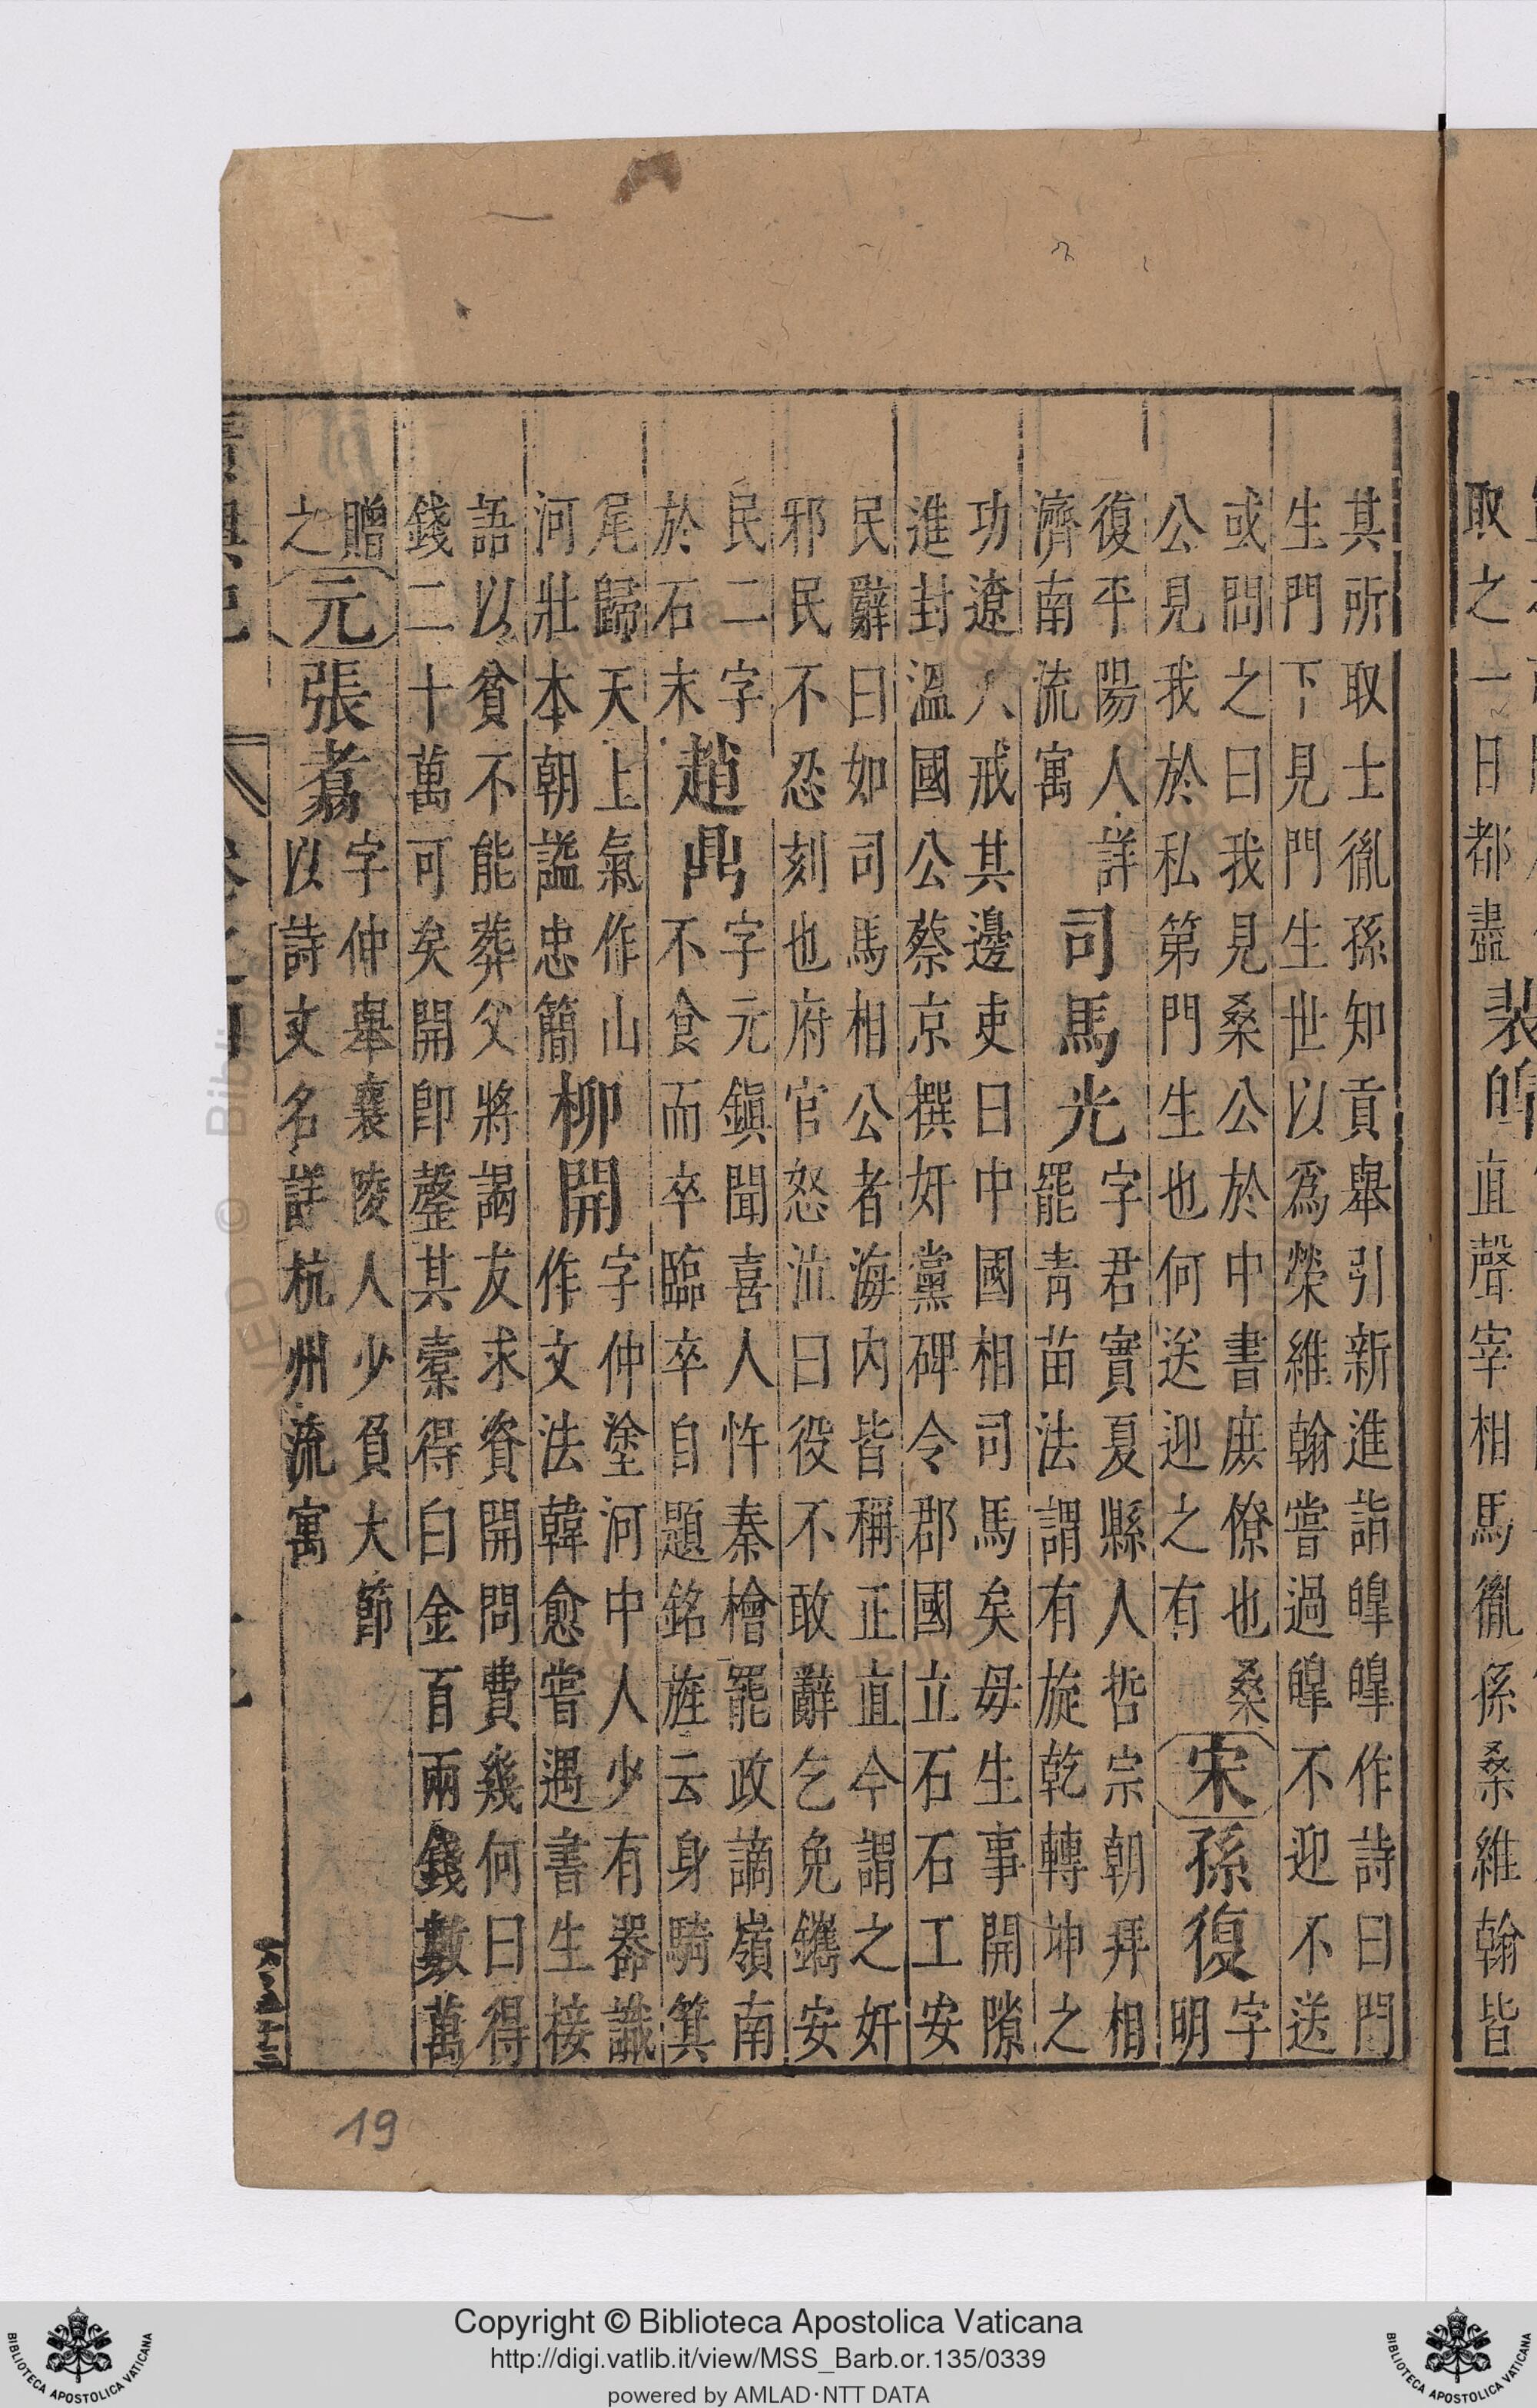 取之一日都盡裴皞直聲宰相馬胤孫桑維翰皆
其所取士胤孫知貢舉引新進詣皞皞作詩曰門
生門下見門生世以爲榮維翰嘗過皞皞不迎不送
或問之曰我見桑公於中書庶僚也桑
公見我於私第門生也何送迎之有
宋
孫復
字
明
復平陽人詳
濟南流寓
司馬光
字君實夏縣人哲宗朝拜相
罷青苗法謂有旋乾轉坤之
功遼人戒其邊吏曰中國相司馬矣毋生事開隙
進封溫國公蔡京撰奸黨碑令郡國立石石工安
民辭曰如司馬相公者海內皆稱正直今謂之奸
邪民不忍刻也府官怒泣曰役不敢辭乞免鐫安
民二字
於石末
趙鼎
字元鎮聞喜人忤秦檜罷政謫嶺南
不食而卒臨卒自題銘旌云身騎箕
尾歸天上氣作山
河壯本朝謚忠簡
柳開
字仲塗河中人少有器識
作文法韓愈嘗遇書生接
語以貧不能葬父將謁友求資開問費幾何曰得
錢二十萬可矣開卽罄其橐得白金百兩錢數萬
贈
之
元
張翥
字仲舉襄陵人少負大節
以詩文名詳杭州流寓
19
Copyright © Biblioteca Apostolica Vaticana
http://digi.vatlib.it/view/MSS_Barb.or.135/0339
powered by AMLAD·NTT DATA
BIBLIOTECA APOSTOLICA VATICANA
BIBLIOTECA APOSTOLICA VATICANA